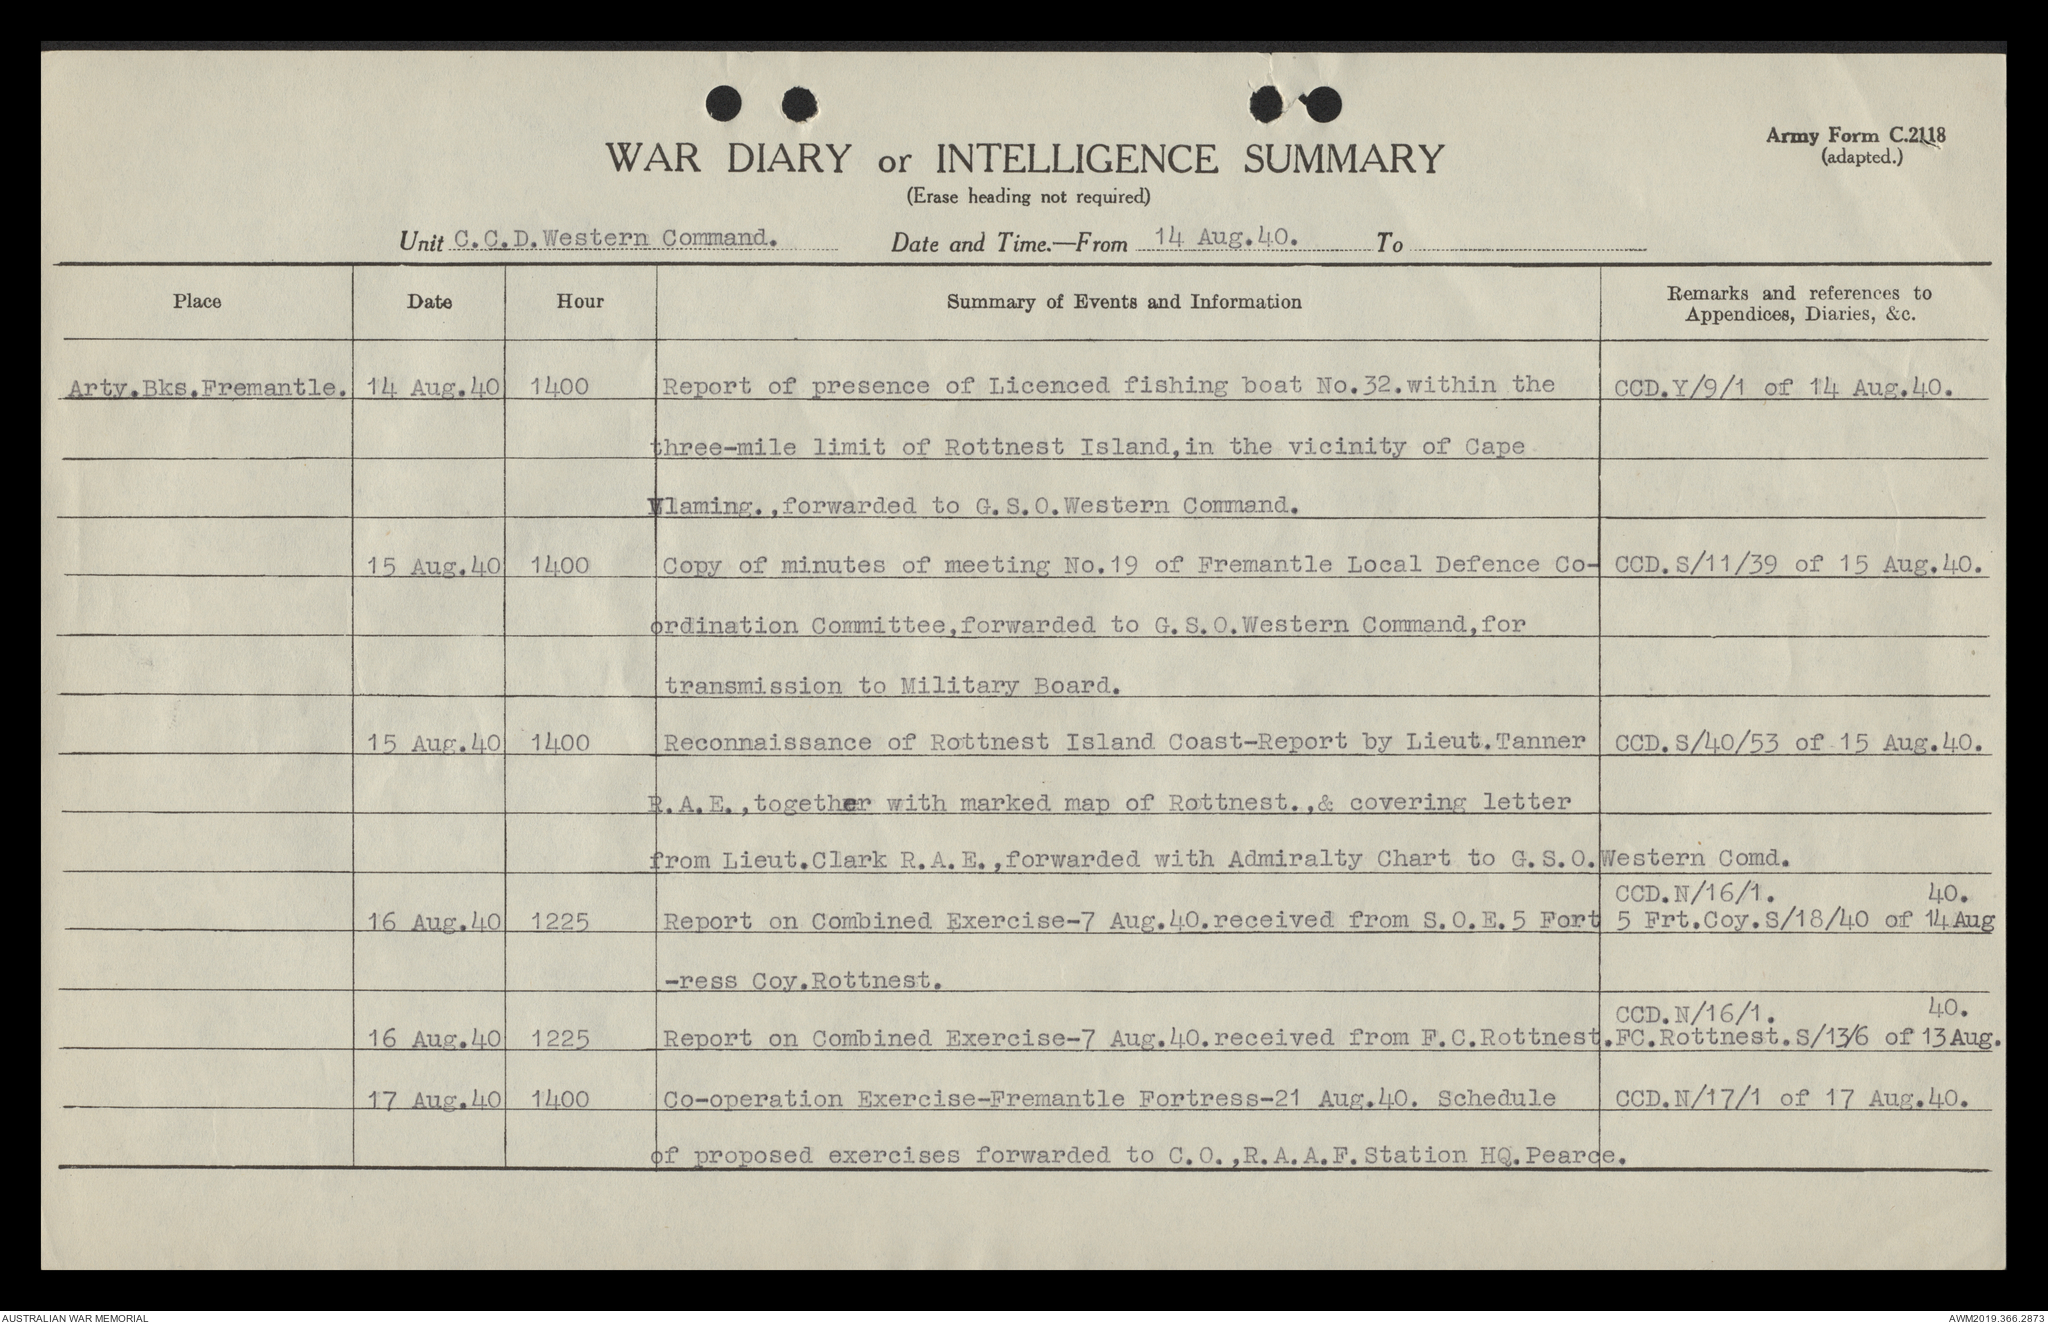 Army Form C.2118
(adapted.)
WAR DIARY or INTELLIGENCE SUMMARY
(Erase heading not required)
Unit C.C.D.Western Command. Date and Time.—From 14 Aug.40. To
Place Date Hour Summary of Events and Information Remarks and references to
Appendices, Diaries, &c.
Arty.Bks.Fremantle. 14 Aug.40 1400 Report of presence of Licenced fishing boat No.32.within the CCD.Y/9/1 of 14 Aug.40.
three-mile limit of Rottnest Island,in the vicinity of Cape
Vlaming.,forwarded to G.S.O.Western Command.
15 Aug.40 1400 Copy of minutes of meeting No.19 of Fremantle Local Defence Co- CCD.S/11/39 of 15 Aug.40.
ordination Committee,forwarded to G.S.O.Western Command,for
transmission to Military Board.
15 Aug.40 1400 Reconnaissance of Rottnest Island Coast-Report by Lieut.Tanner CCD.S/40/53 of 15 Aug.40.
R.A.E.,together with marked map of Rottnest.,& covering letter
from Lieut.Clark R.A.E.,forwarded with Admiralty Chart to G.S.O.Western Comd.
CCD.N/16/1. 40.
16 Aug.40 1225 Report on Combined Exercise-7 Aug.40.received from S.O.E.5 Fort 5 Frt.Coy.S/18/40 of 14 Aug
-ress Coy.Rottnest.
CCD.N/16/1. 40.
16 Aug.40 1225 Report on Combined Exercise-7 Aug.40.received from F.C.Rottnest.FC.Rottnest.S/13/6 of 13 Aug.
17 Aug.40 1400 Co-operation Exercise-Fremantle Fortress-21 Aug.40. Schedule CCD.N/17/1 of 17 Aug.40.
of proposed exercises forwarded to C.O.,R.A.A.F.Station HQ.Pearce.
AUSTRALIAN WAR MEMORIAL AWM2019.366.2873